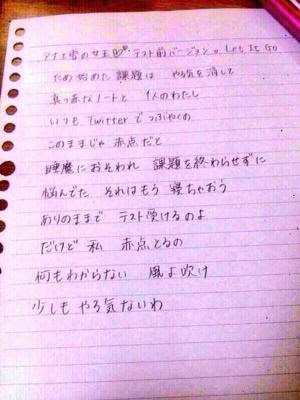 アナと雪の女王 テスト前バージョン。Let It Go
ため始めた 課題は やる気を消して
真っ赤なノートと 1人のわたし
いつも Twitterで つぶやくの
このままじゃ 赤点だと
睡魔におそわれ 課題を終わらせずに
悩んでた それはもう 寝ちゃおう
ありのままで テスト受けるのよ
だけど 私 赤点とるの
何もわからない 風よ吹け
少しも やる気ないわ